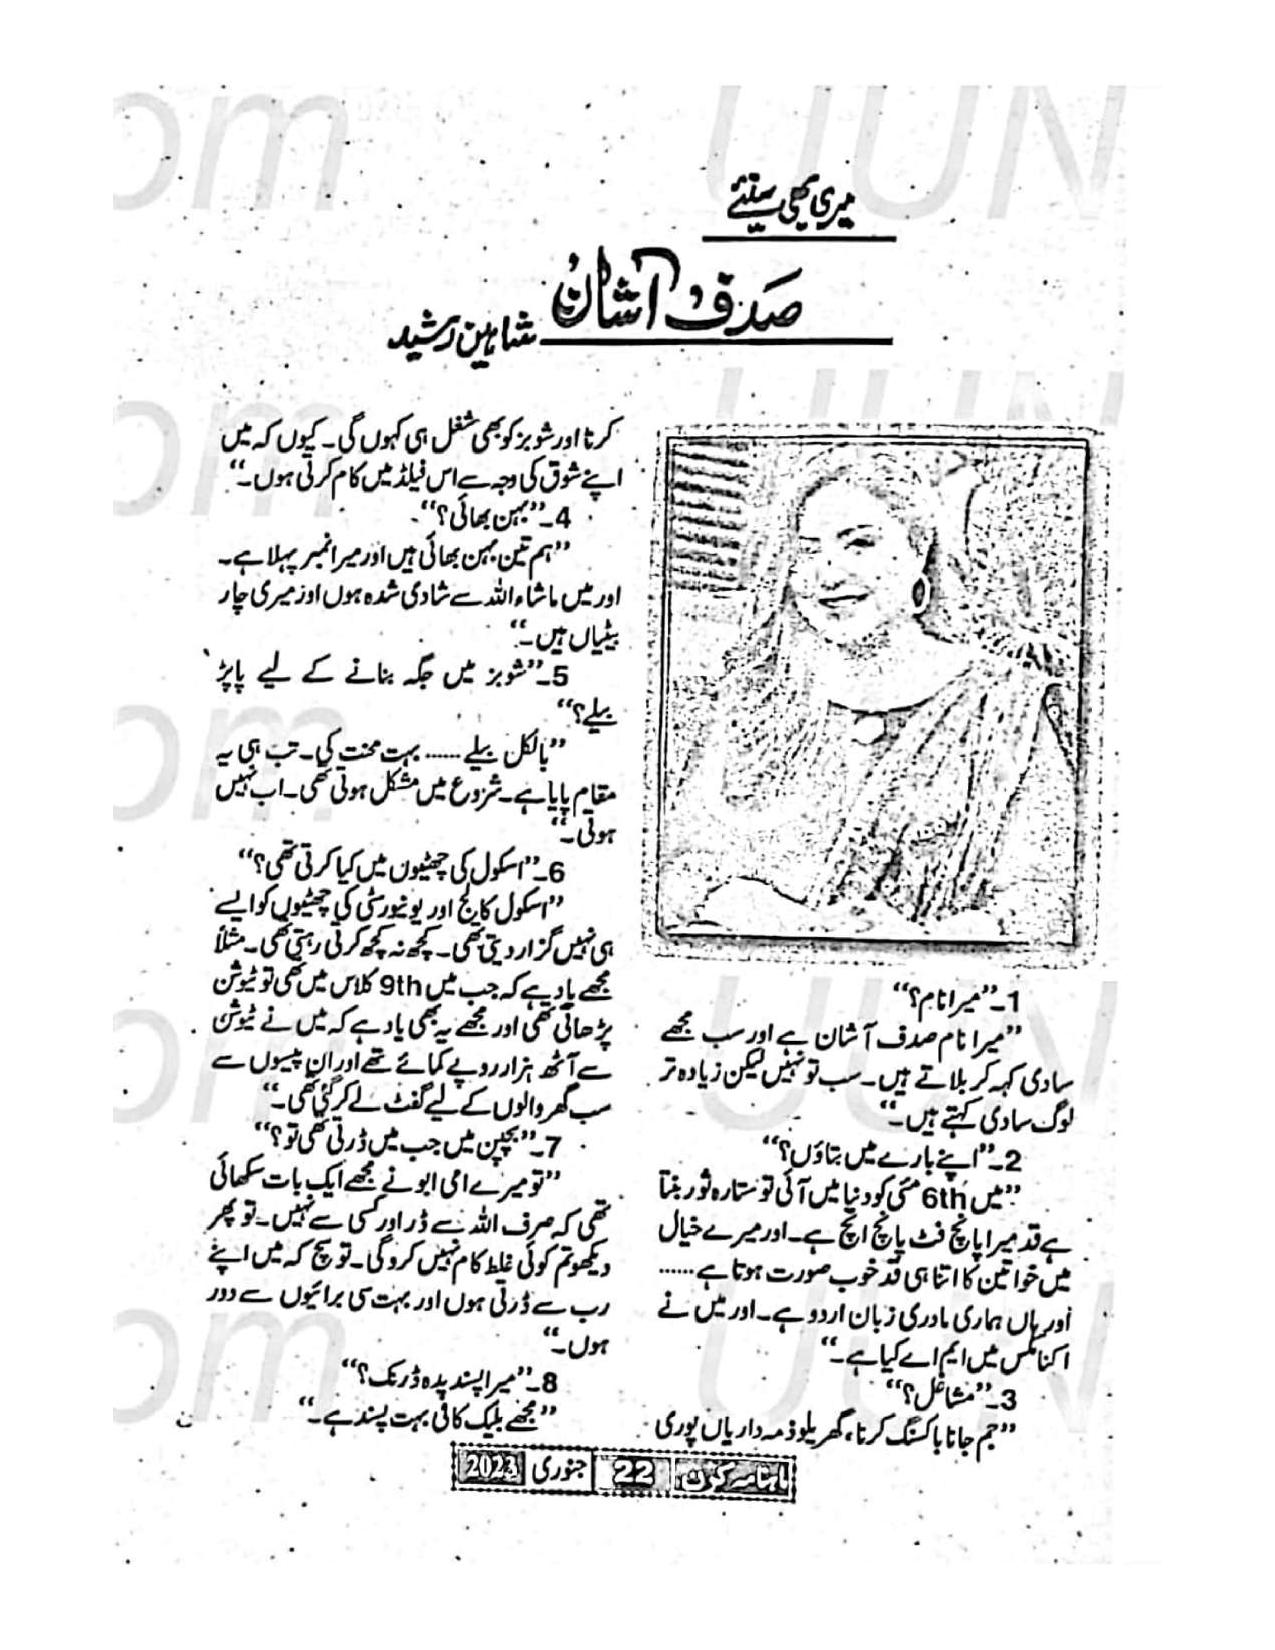 میری بھی سنئے
صدف آشان
شاہین رشید
1۔ ”میرا نام؟“
”میرا نام صدف آشان ہے اور سب مجھے
سادی کہہ کر بلاتے ہیں۔ سب تو نہیں لیکن زیادہ تر
لوگ سادی کہتے ہیں۔“
2۔ ”اپنے بارے میں بتاؤں؟“
”میں 6th مئی کو دنیا میں آئی تو ستارہ ثور بنتا
ہے قد میرا پانچ فٹ پانچ انچ ہے۔ اور میرے خیال
میں خواتین کا اتنا ہی قد خوب صورت ہوتا ہے ......
اور ہاں ہماری مادری زبان اردو ہے۔ اور میں نے
اکنامکس میں ایم اے کیا ہے۔“
3۔ ”مشاغل؟“
”جم جانا باکسنگ کرنا، گھریلو ذمہ داریاں پوری
کرنا اور شوبز کو بھی شغل ہی کہوں گی۔ کیوں کہ میں
اپنے شوق کی وجہ سے اس فیلڈ میں کام کرتی ہوں۔“
4۔ ”بہن بھائی؟“
”ہم تین بہن بھائی ہیں اور میرا نمبر پہلا ہے۔
اور میں ماشاء اللہ سے شادی شدہ ہوں اور میری چار
بیٹیاں ہیں۔“
5۔ ”شوبز میں جگہ بنانے کے لیے پاپڑ
بیلے؟“
”بالکل بیلے ...... بہت محنت کی۔ تب ہی یہ
مقام پایا ہے۔ شروع میں مشکل ہوتی تھی۔ اب نہیں
ہوتی۔“
6۔ ”اسکول کی چھٹیوں میں کیا کرتی تھی؟“
”اسکول کالج اور یونیورسٹی کی چھٹیوں کو ایسے
ہی نہیں گزار دیتی تھی۔ کچھ نہ کچھ کرتی رہتی تھی۔ مثلاً
مجھے یاد ہے کہ جب میں 9th کلاس میں تھی تو ٹیوشن
پڑھاتی تھی اور مجھے یہ بھی یاد ہے کہ میں نے ٹیوشن
سے آٹھ ہزار روپے کمائے تھے اور ان پیسوں سے
سب گھر والوں کے لیے گفٹ لے کر گئی تھی۔“
7۔ ”بچپن میں جب میں ڈرتی تھی تو؟“
”تو میرے امی ابو نے مجھے ایک بات سکھائی
تھی کہ صرف اللہ سے ڈر اور کسی سے نہیں۔ تو پھر
دیکھو تم کوئی غلط کام نہیں کرو گی۔ تو سچ کہ میں اپنے
رب سے ڈرتی ہوں اور بہت سی برائیوں سے دور
ہوں۔“
8۔ ”میرا پسندیدہ ڈرنک؟“
”مجھے بلیک کافی بہت پسند ہے۔“
ماہنامہ کرن 22 جنوری 2023